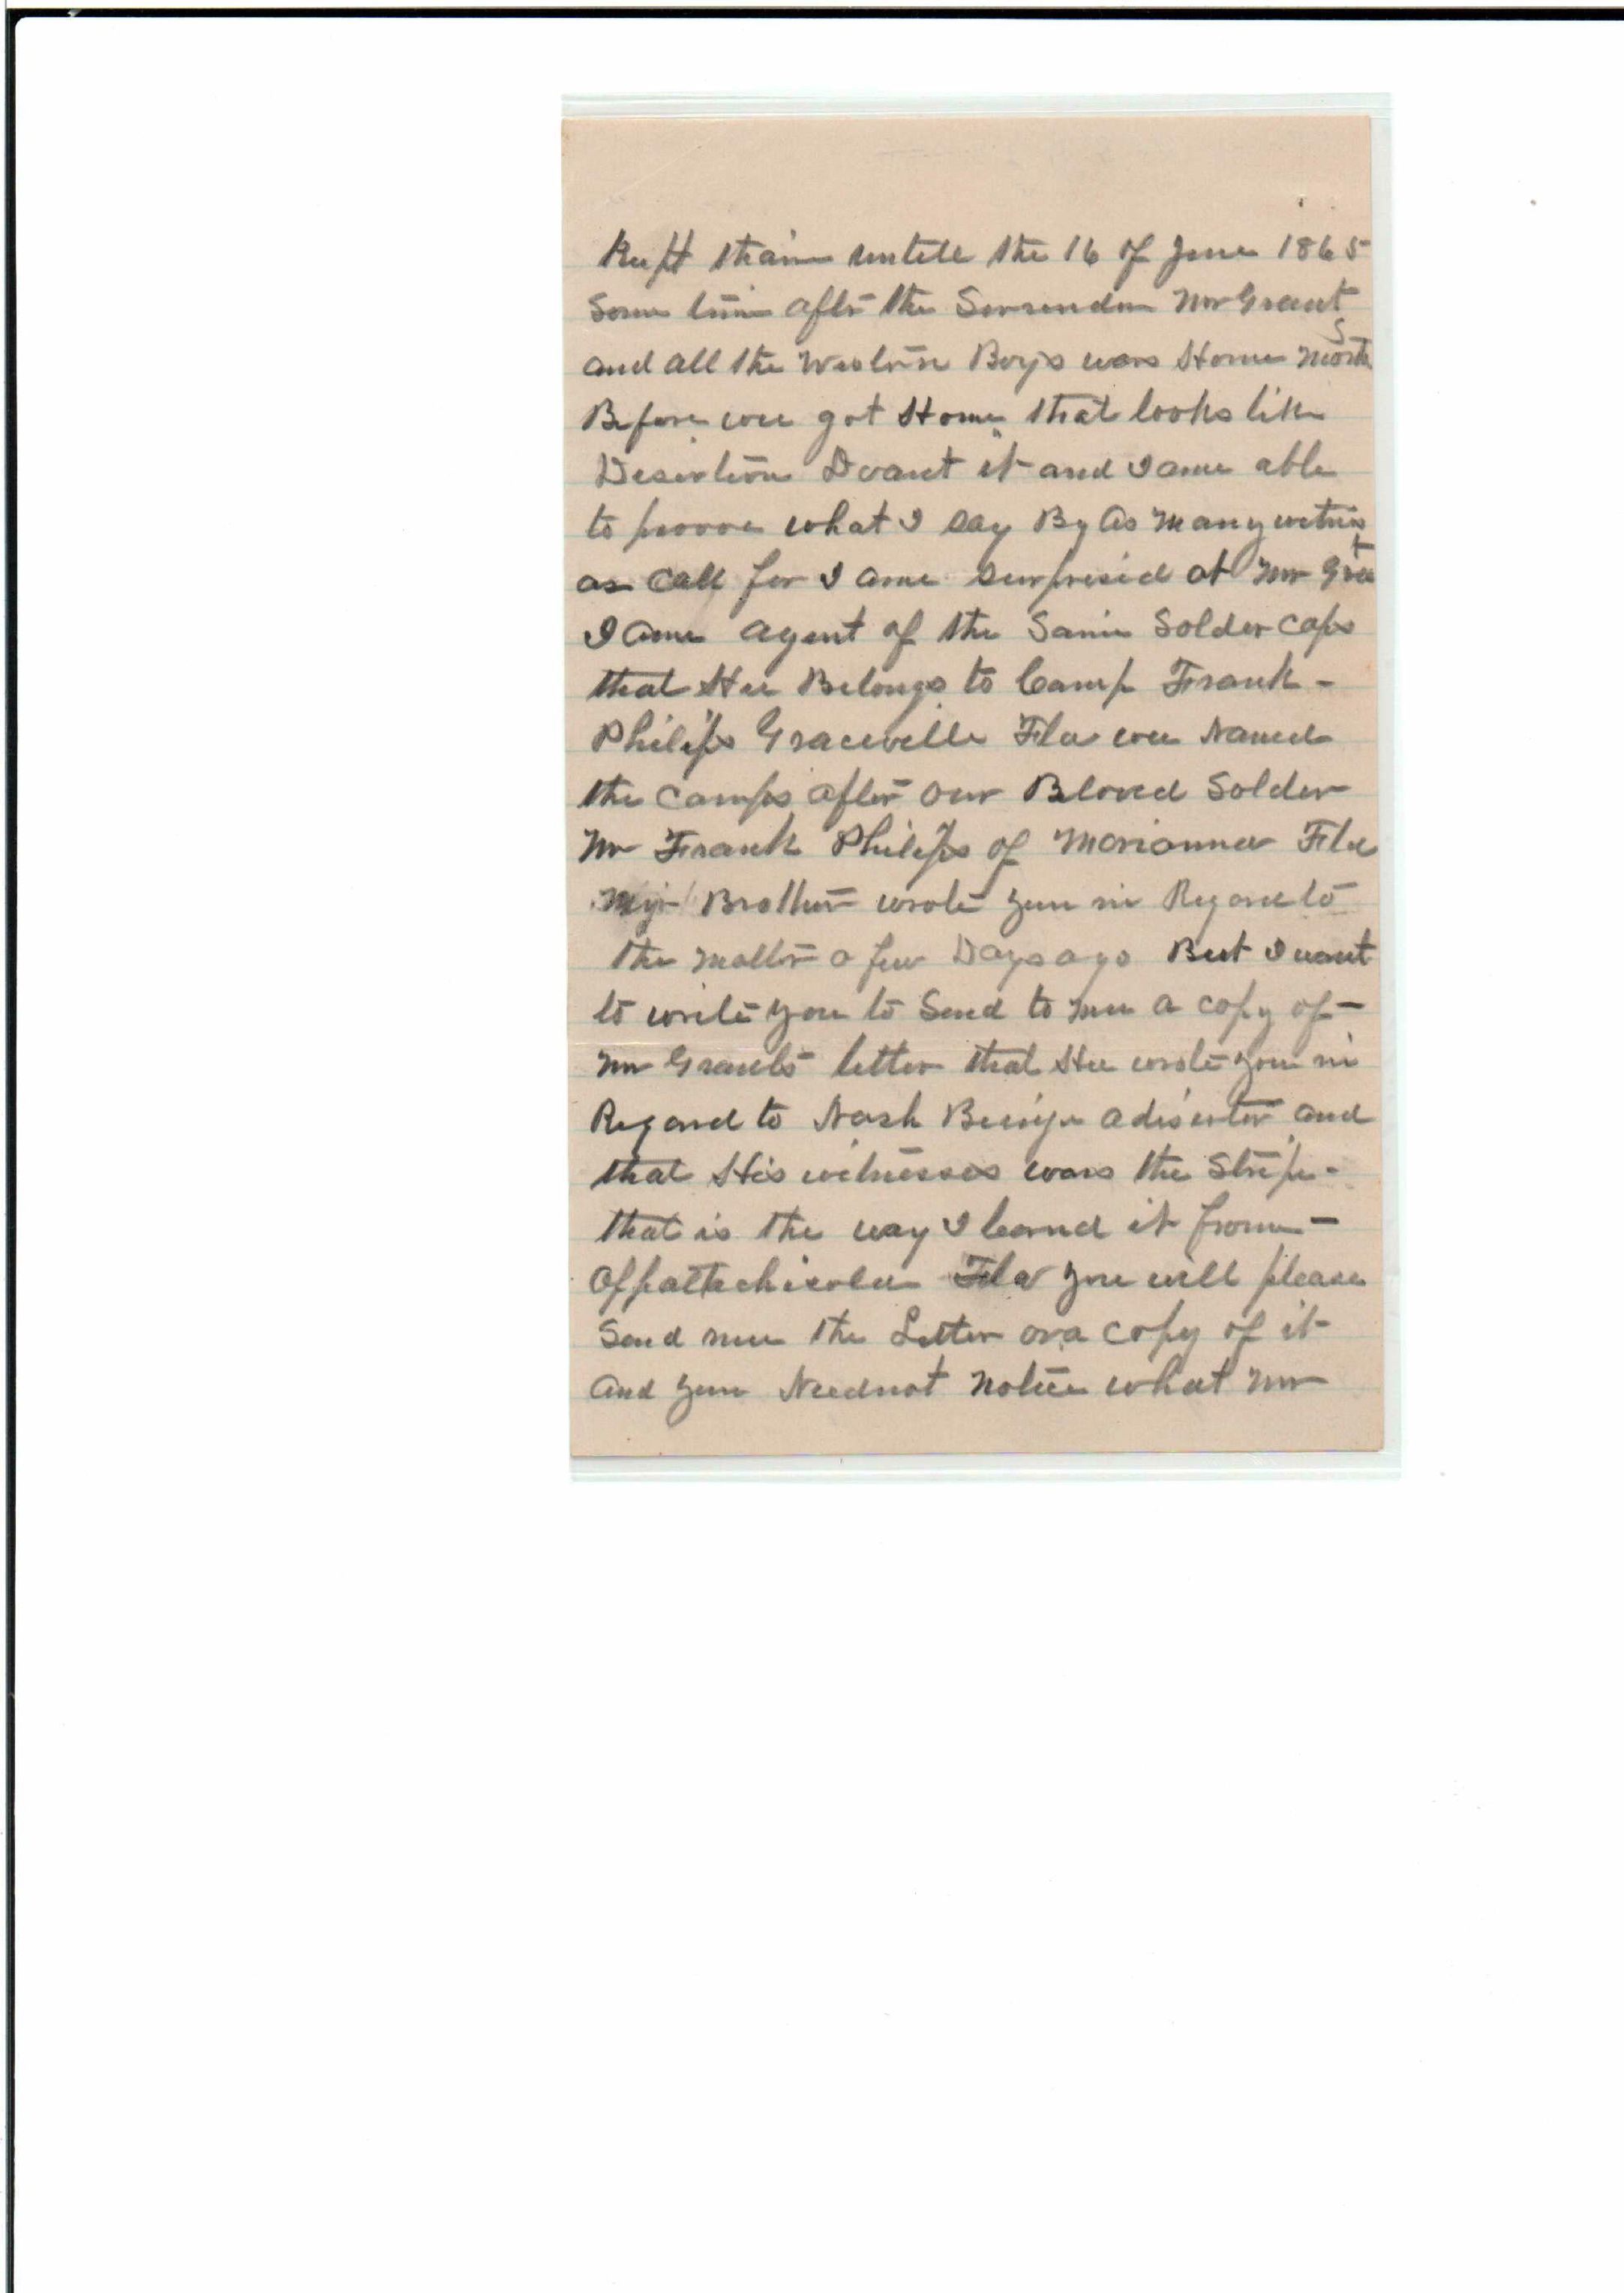 Keept thair untell the 16 of June 1865
Some time after the Surrender Mr Grant
and all the Western Boys was Home Months
Before wee got Home that looks like
Desertion Doant it and I ame able
to proove what I say By As Many witnis
as call for I ame surprised at Mr Grat
I ame agent of the Same Solder Caps
that Hee Belongs to Camp Frank -
Philips Graceville Fla wee Named
the Camps after our Beloved Solder
Mr Frank Philips of Marianna Fla
My Brother wrote you in Regard to
the Matter a few Days ago But I want
to write you to Send to mee a copy of -
Mr Grants letter that Hee wrote you in
Regard to Nash Beinge a diserter and
that His witnesses wars the Stripe -
that is the way I learnd it from -
Appaltachicola Fla you will please
Send mee the Letter or a copy of it
and you Neednot Notice what Mr